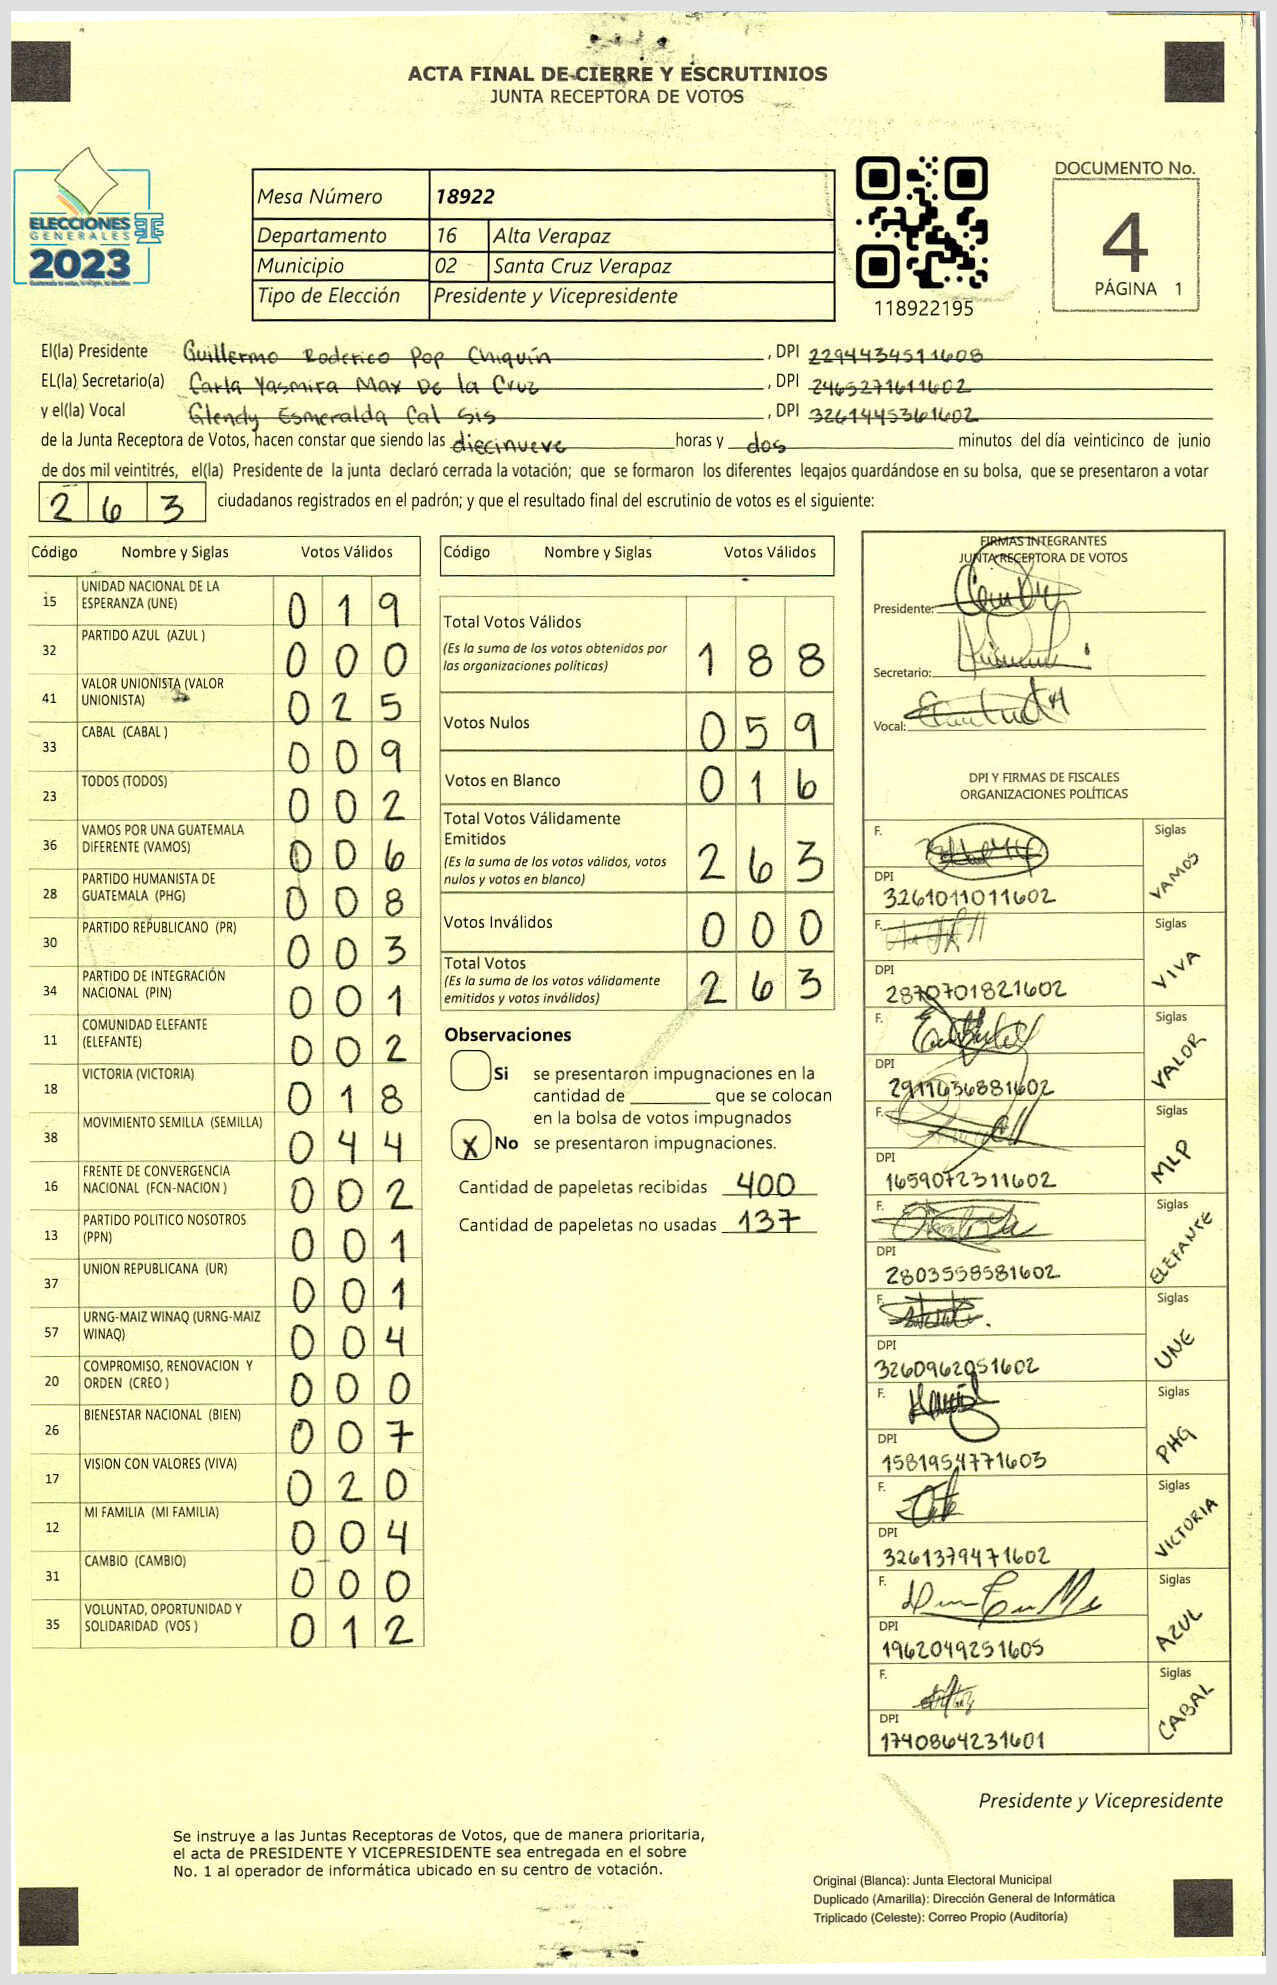 ACTA FINAL DE CIERRE Y ESCRUTINIOS
JUNTA RECEPTORA DE VOTOS
ELECCIONES
GENERALES
2023
Mesa Número 18922
Departamento 16 Alta Verapaz
Municipio 02 Santa Cruz Verapaz
Tipo de Elección Presidente y Vicepresidente
118922195
DOCUMENTO No.
4
PÁGINA 1
El(la) Presidente Guillermo Roderico Pop Chiquín, DPI 2294434511608
EL(la) Secretario(a) Carla Yasmira Max De la Cruz, DPI 2465271611602
y el(la) Vocal Glendy Esmeralda Cal Sis, DPI 3261445361602
de la Junta Receptora de Votos, hacen constar que siendo las diecinueve horas y dos minutos del día veinticinco de junio
de dos mil veintitrés, el(la) Presidente de la junta declaró cerrada la votación; que se formaron los diferentes legajos guardándose en su bolsa, que se presentaron a votar
263 ciudadanos registrados en el padrón; y que el resultado final del escrutinio de votos es el siguiente:
Código Nombre y Siglas Votos Válidos
15 UNIDAD NACIONAL DE LA ESPERANZA (UNE) 019
32 PARTIDO AZUL (AZUL ) 000
41 VALOR UNIONISTA (VALOR UNIONISTA) 025
33 CABAL (CABAL ) 009
23 TODOS (TODOS) 002
36 VAMOS POR UNA GUATEMALA DIFERENTE (VAMOS) 006
28 PARTIDO HUMANISTA DE GUATEMALA (PHG) 008
30 PARTIDO REPUBLICANO (PR) 003
34 PARTIDO DE INTEGRACIÓN NACIONAL (PIN) 001
11 COMUNIDAD ELEFANTE (ELEFANTE) 002
18 VICTORIA (VICTORIA) 018
38 MOVIMIENTO SEMILLA (SEMILLA) 044
16 FRENTE DE CONVERGENCIA NACIONAL (FCN-NACION ) 002
13 PARTIDO POLITICO NOSOTROS (PPN) 001
37 UNION REPUBLICANA (UR) 001
57 URNG-MAIZ WINAQ (URNG-MAIZ WINAQ) 004
20 COMPROMISO, RENOVACION Y ORDEN (CREO ) 000
26 BIENESTAR NACIONAL (BIEN) 007
17 VISION CON VALORES (VIVA) 020
12 MI FAMILIA (MI FAMILIA) 004
31 CAMBIO (CAMBIO) 000
35 VOLUNTAD, OPORTUNIDAD Y SOLIDARIDAD (VOS ) 012
Código Nombre y Siglas Votos Válidos
Total Votos Válidos 188
(Es la suma de los votos obtenidos por
las organizaciones políticas)
Votos Nulos 059
Votos en Blanco 016
Total Votos Válidamente
Emitidos 263
(Es la suma de los votos válidos, votos
nulos y votos en blanco)
Votos Inválidos 000
Total Votos 263
(Es la suma de los votos válidamente
emitidos y votos inválidos)
Observaciones
Si se presentaron impugnaciones en la
cantidad de ________ que se colocan
en la bolsa de votos impugnados
X No se presentaron impugnaciones.
Cantidad de papeletas recibidas 400
Cantidad de papeletas no usadas 137
FIRMAS INTEGRANTES
JUNTA RECEPTORA DE VOTOS
Presidente:
Secretario:
Vocal:
DPI Y FIRMAS DE FISCALES
ORGANIZACIONES POLÍTICAS
F. Siglas VAMOS
DPI 3261011011602
F. Siglas VIVA
DPI 2870701821602
F. Siglas VALOR
DPI 2911636881602
F. Siglas MLP
DPI 1659072311602
F. Siglas ELEFANTE
DPI 2803558581602
F. Siglas UNE
DPI 3260962051602
F. Siglas PHG
DPI 1581954771603
F. Siglas VICTORIA
DPI 3261379471602
F. Siglas AZUL
DPI 1962049251605
F. Siglas CABAL
DPI 1740864231601
Presidente y Vicepresidente
Se instruye a las Juntas Receptoras de Votos, que de manera prioritaria,
el acta de PRESIDENTE Y VICEPRESIDENTE sea entregada en el sobre
No. 1 al operador de informática ubicado en su centro de votación.
Original (Blanca): Junta Electoral Municipal
Duplicado (Amarilla): Dirección General de Informática
Triplicado (Celeste): Correo Propio (Auditoría)